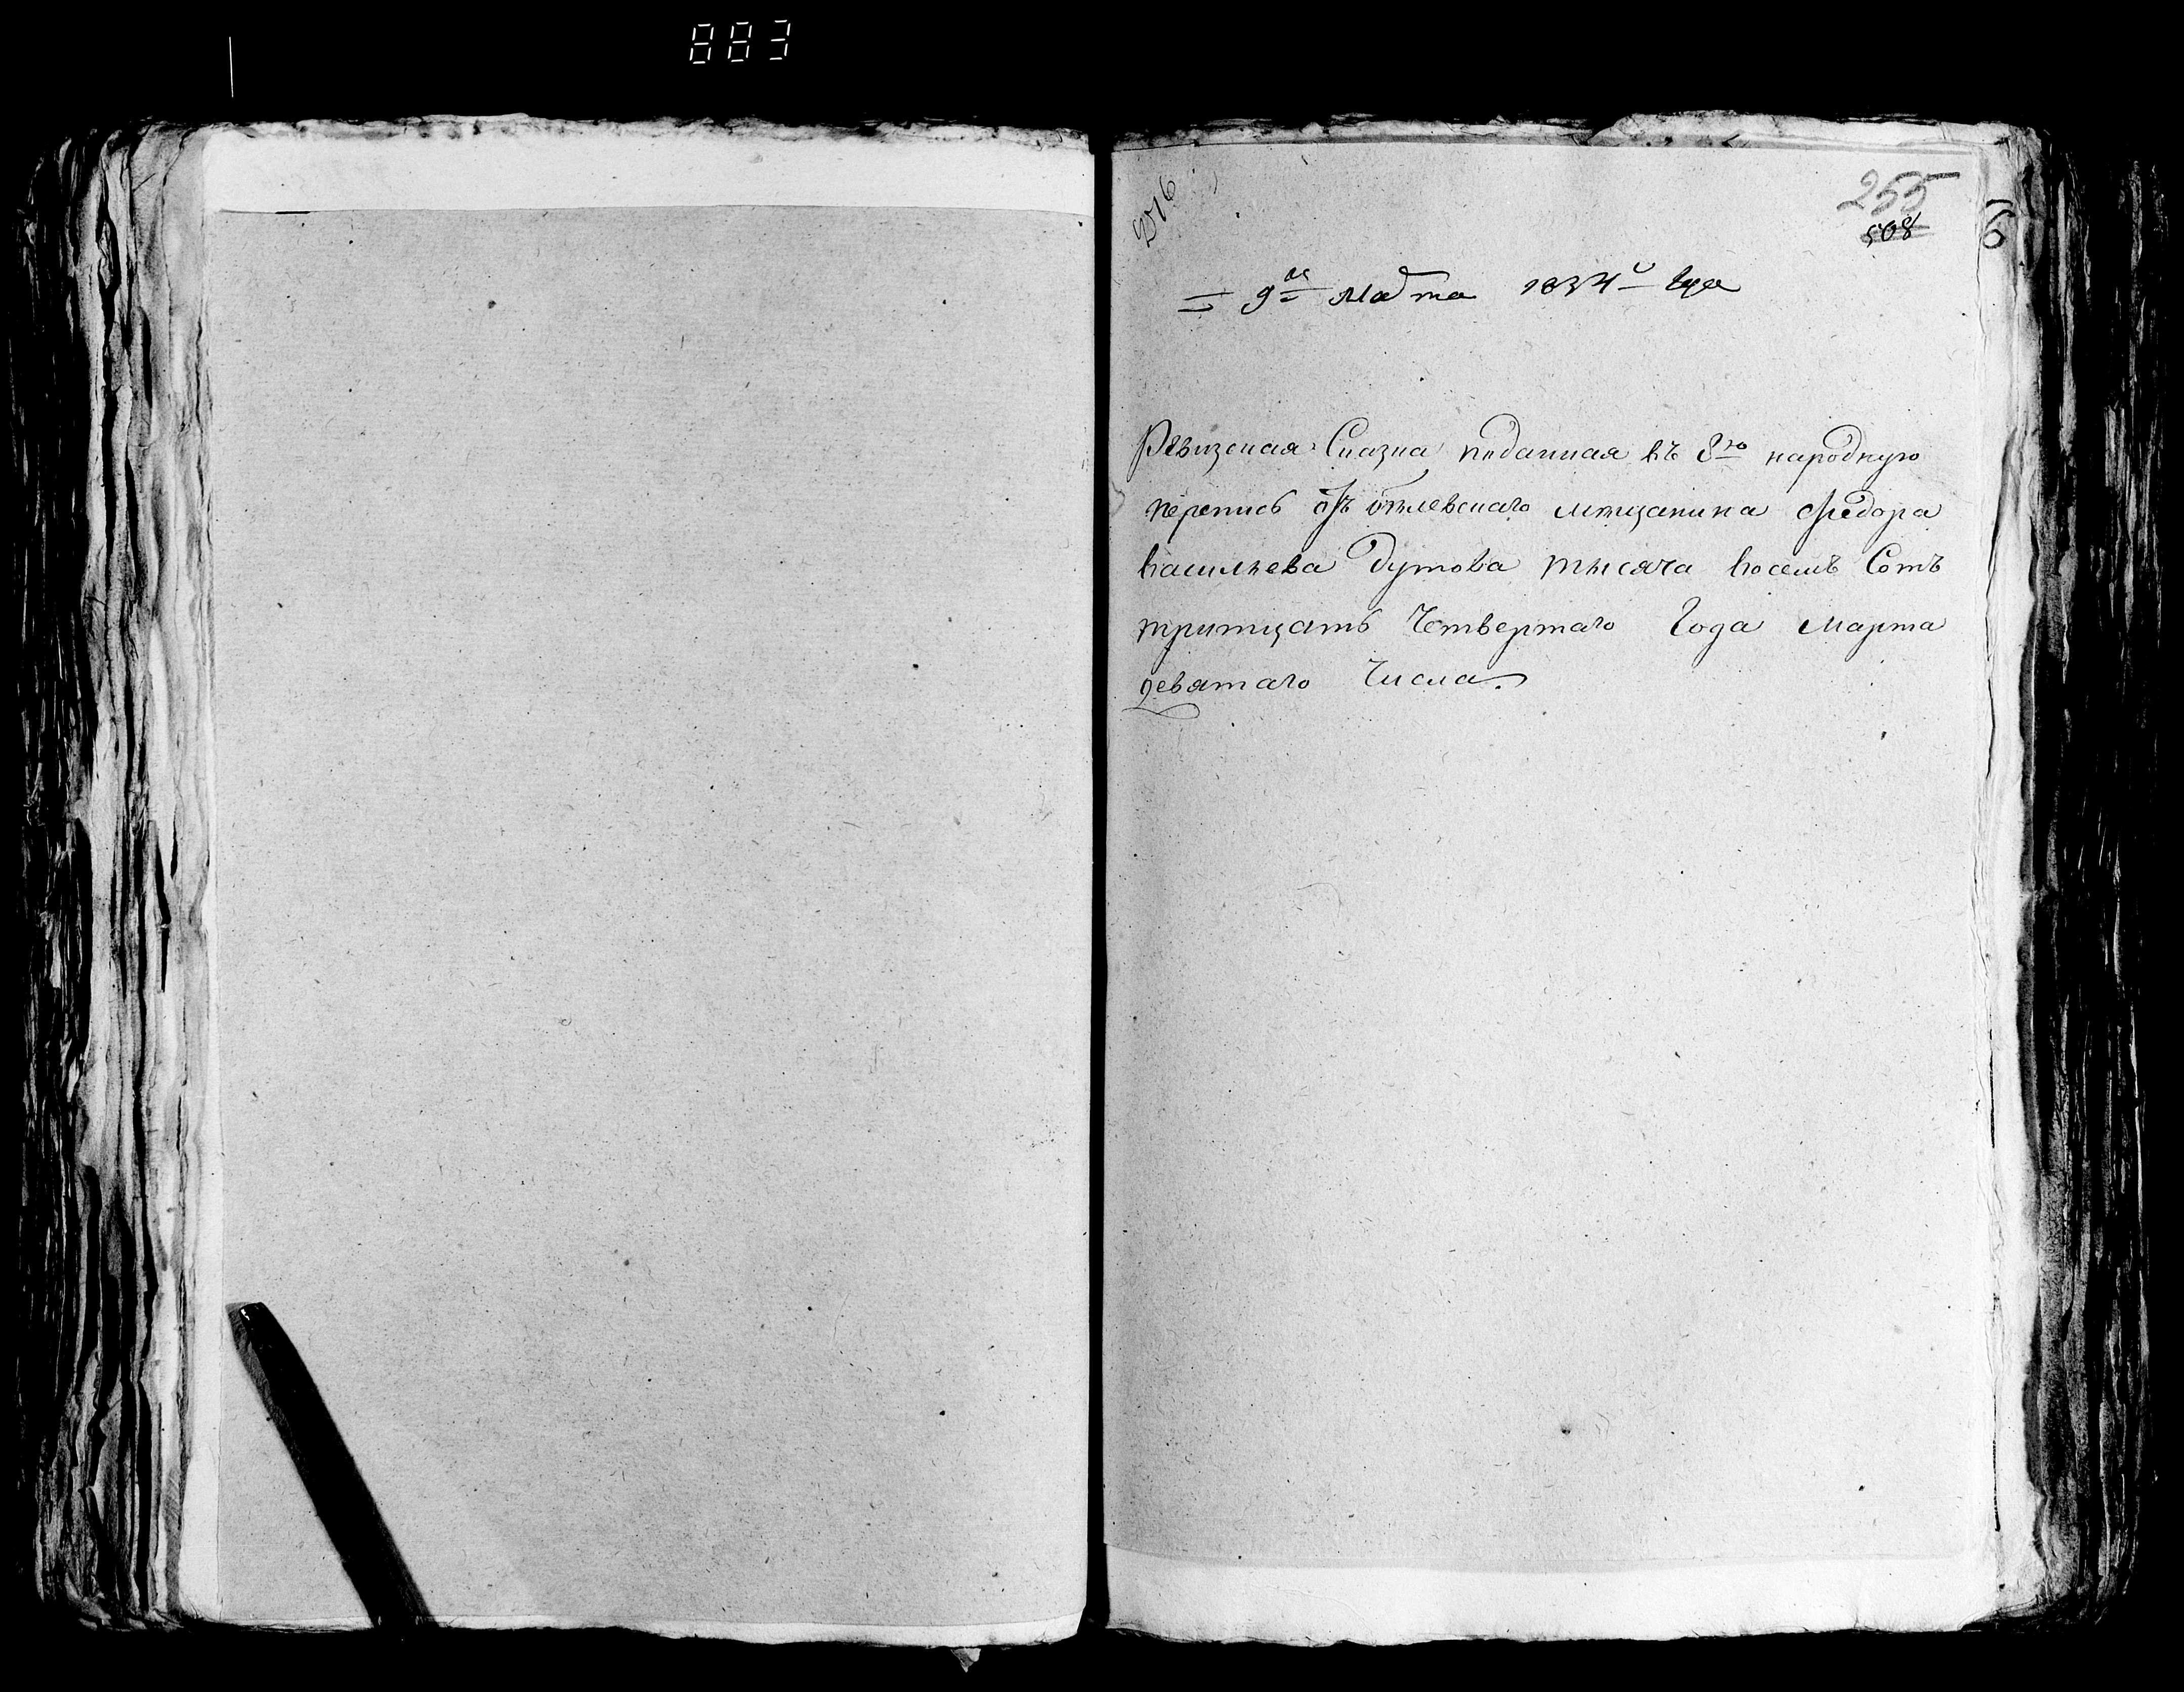 883
255
508
6
9го Марта 1834го Года
Ревизская Сказка поданная въ 8ю народную
перепись отъ мещанина Федора
Васильева Дутова тысяча восемъ Сотъ
тритцать Четвертаго Года Марта
девятаго Числа.